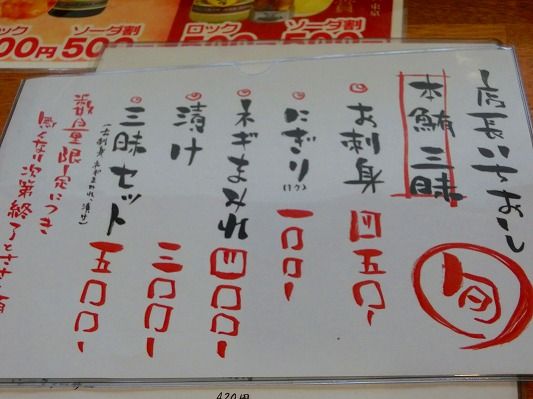 店長いちおし
旬
本鮪三昧
お刺身 四五〇〇ー
にぎり(1カン) 一〇〇ー
ネギまみれ 四〇〇ー
漬け 三〇〇ー
三昧セット 五〇〇ー
(お刺身 ネギまみれ 漬け)
数量限定につき
無くなり次第終了とさせ
ロック
ソーダ割
00円
500
ロック
ソーダ割
500
500
420円